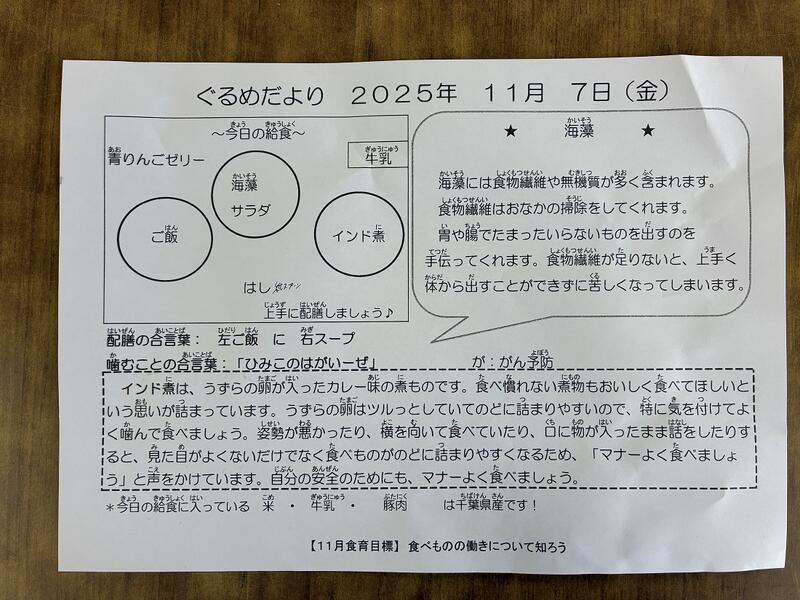 ぐるめだより 2025年 11月 7日(金)
～今日の給食～
青りんごゼリー
牛乳
海藻
サラダ
ご飯
インド煮
はし
上手に配膳しましょう♪
★ 海藻 ★
海藻には食物繊維や無機質が多く含まれます。
食物繊維はおなかの掃除をしてくれます。
胃や腸でたまったいらないものを出すのを
手伝ってくれます。食物繊維が足りないと、上手く
体から出すことができずに苦しくなってしまいます。
配膳の合言葉: 左ご飯 に 右スープ
噛むことの合言葉:「ひみこのはがいーぜ」 が:がん予防
インド煮は、うずらの卵が入ったカレー味の煮ものです。食べ慣れない煮物もおいしく食べてほしいと
いう思いが詰まっています。うずらの卵はツルっとしていてのどに詰まりやすいので、特に気を付けてよ
く噛んで食べましょう。姿勢が悪かったり、横を向いて食べていたり、口に物が入ったまま話をしたりす
ると、見た目がよくないだけでなく食べものがのどに詰まりやすくなるため、「マナーよく食べましょ
う」と声をかけています。自分の安全のためにも、マナーよく食べましょう。
＊今日の給食に入っている 米 ・ 牛乳 ・ 豚肉 は千葉県産です！
【11月食育目標】 食べものの働きについて知ろう